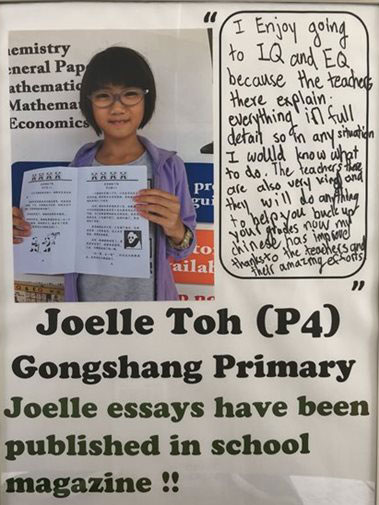 emistry
eneral Pap
athematic
Mathema
Economics
“
I Enjoy going
to IQ and EQ
because the teachers
there explain
everything in full
detail so in any situation
I would know what
to do. The teachers there
are also very kind and
they will do anything
to help you buck up
your grades now my
chinese has improve
thanks to the teachers and
their amazing efforts
”
pr
gui
to
vailab
Joelle Toh (P4)
Gongshang Primary
Joelle essays have been
published in school
magazine !!